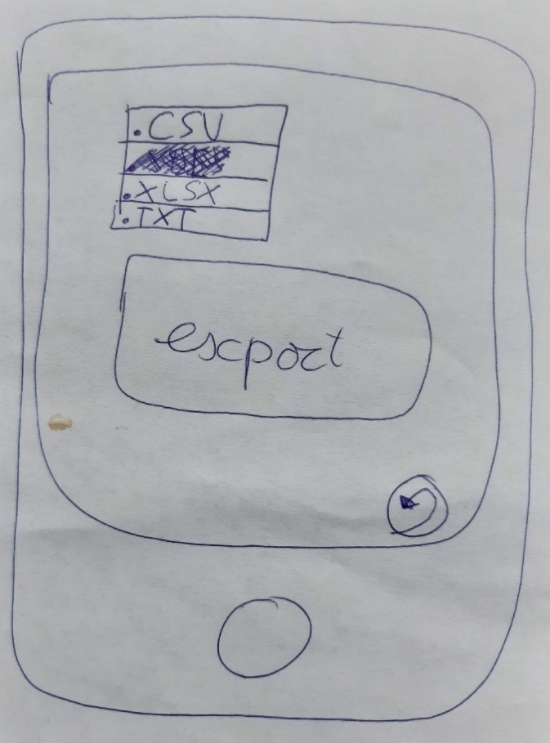 .CSV
.XLSX
.TXT
escport